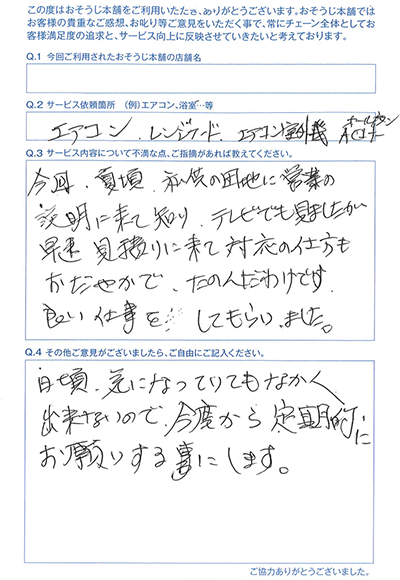 この度はおそうじ本舗をご利用いただき、ありがとうございます。おそうじ本舗では
お客様の貴重なご感想、お叱り等ご意見をいただく事で、常にチェーン全体としてお
客様満足度の追求と、サービス向上に反映させていきたいと考えております。
Q.1 今回ご利用されたおそうじ本舗の店舗名
Q.2 サービス依頼箇所 (例)エアコン、浴室…等
エアコン、レンジフード、エアコン室外機
Q.3 サービス内容について不満な点、ご指摘があれば教えてください。
今回、夏頃、私共の団地に営業の
説明に来て知り、テレビでも見ましたが
早速 見積りに来て対応の仕方も
おだやかで、たのんだわけです。
良い仕事を してもらいました。
Q.4 その他ご意見がございましたら、ご自由にご記入ください。
日頃、気になっていてもなかく
出来ないので、今度から定期的に
お願いする事にします。
ご協力ありがとうございました。